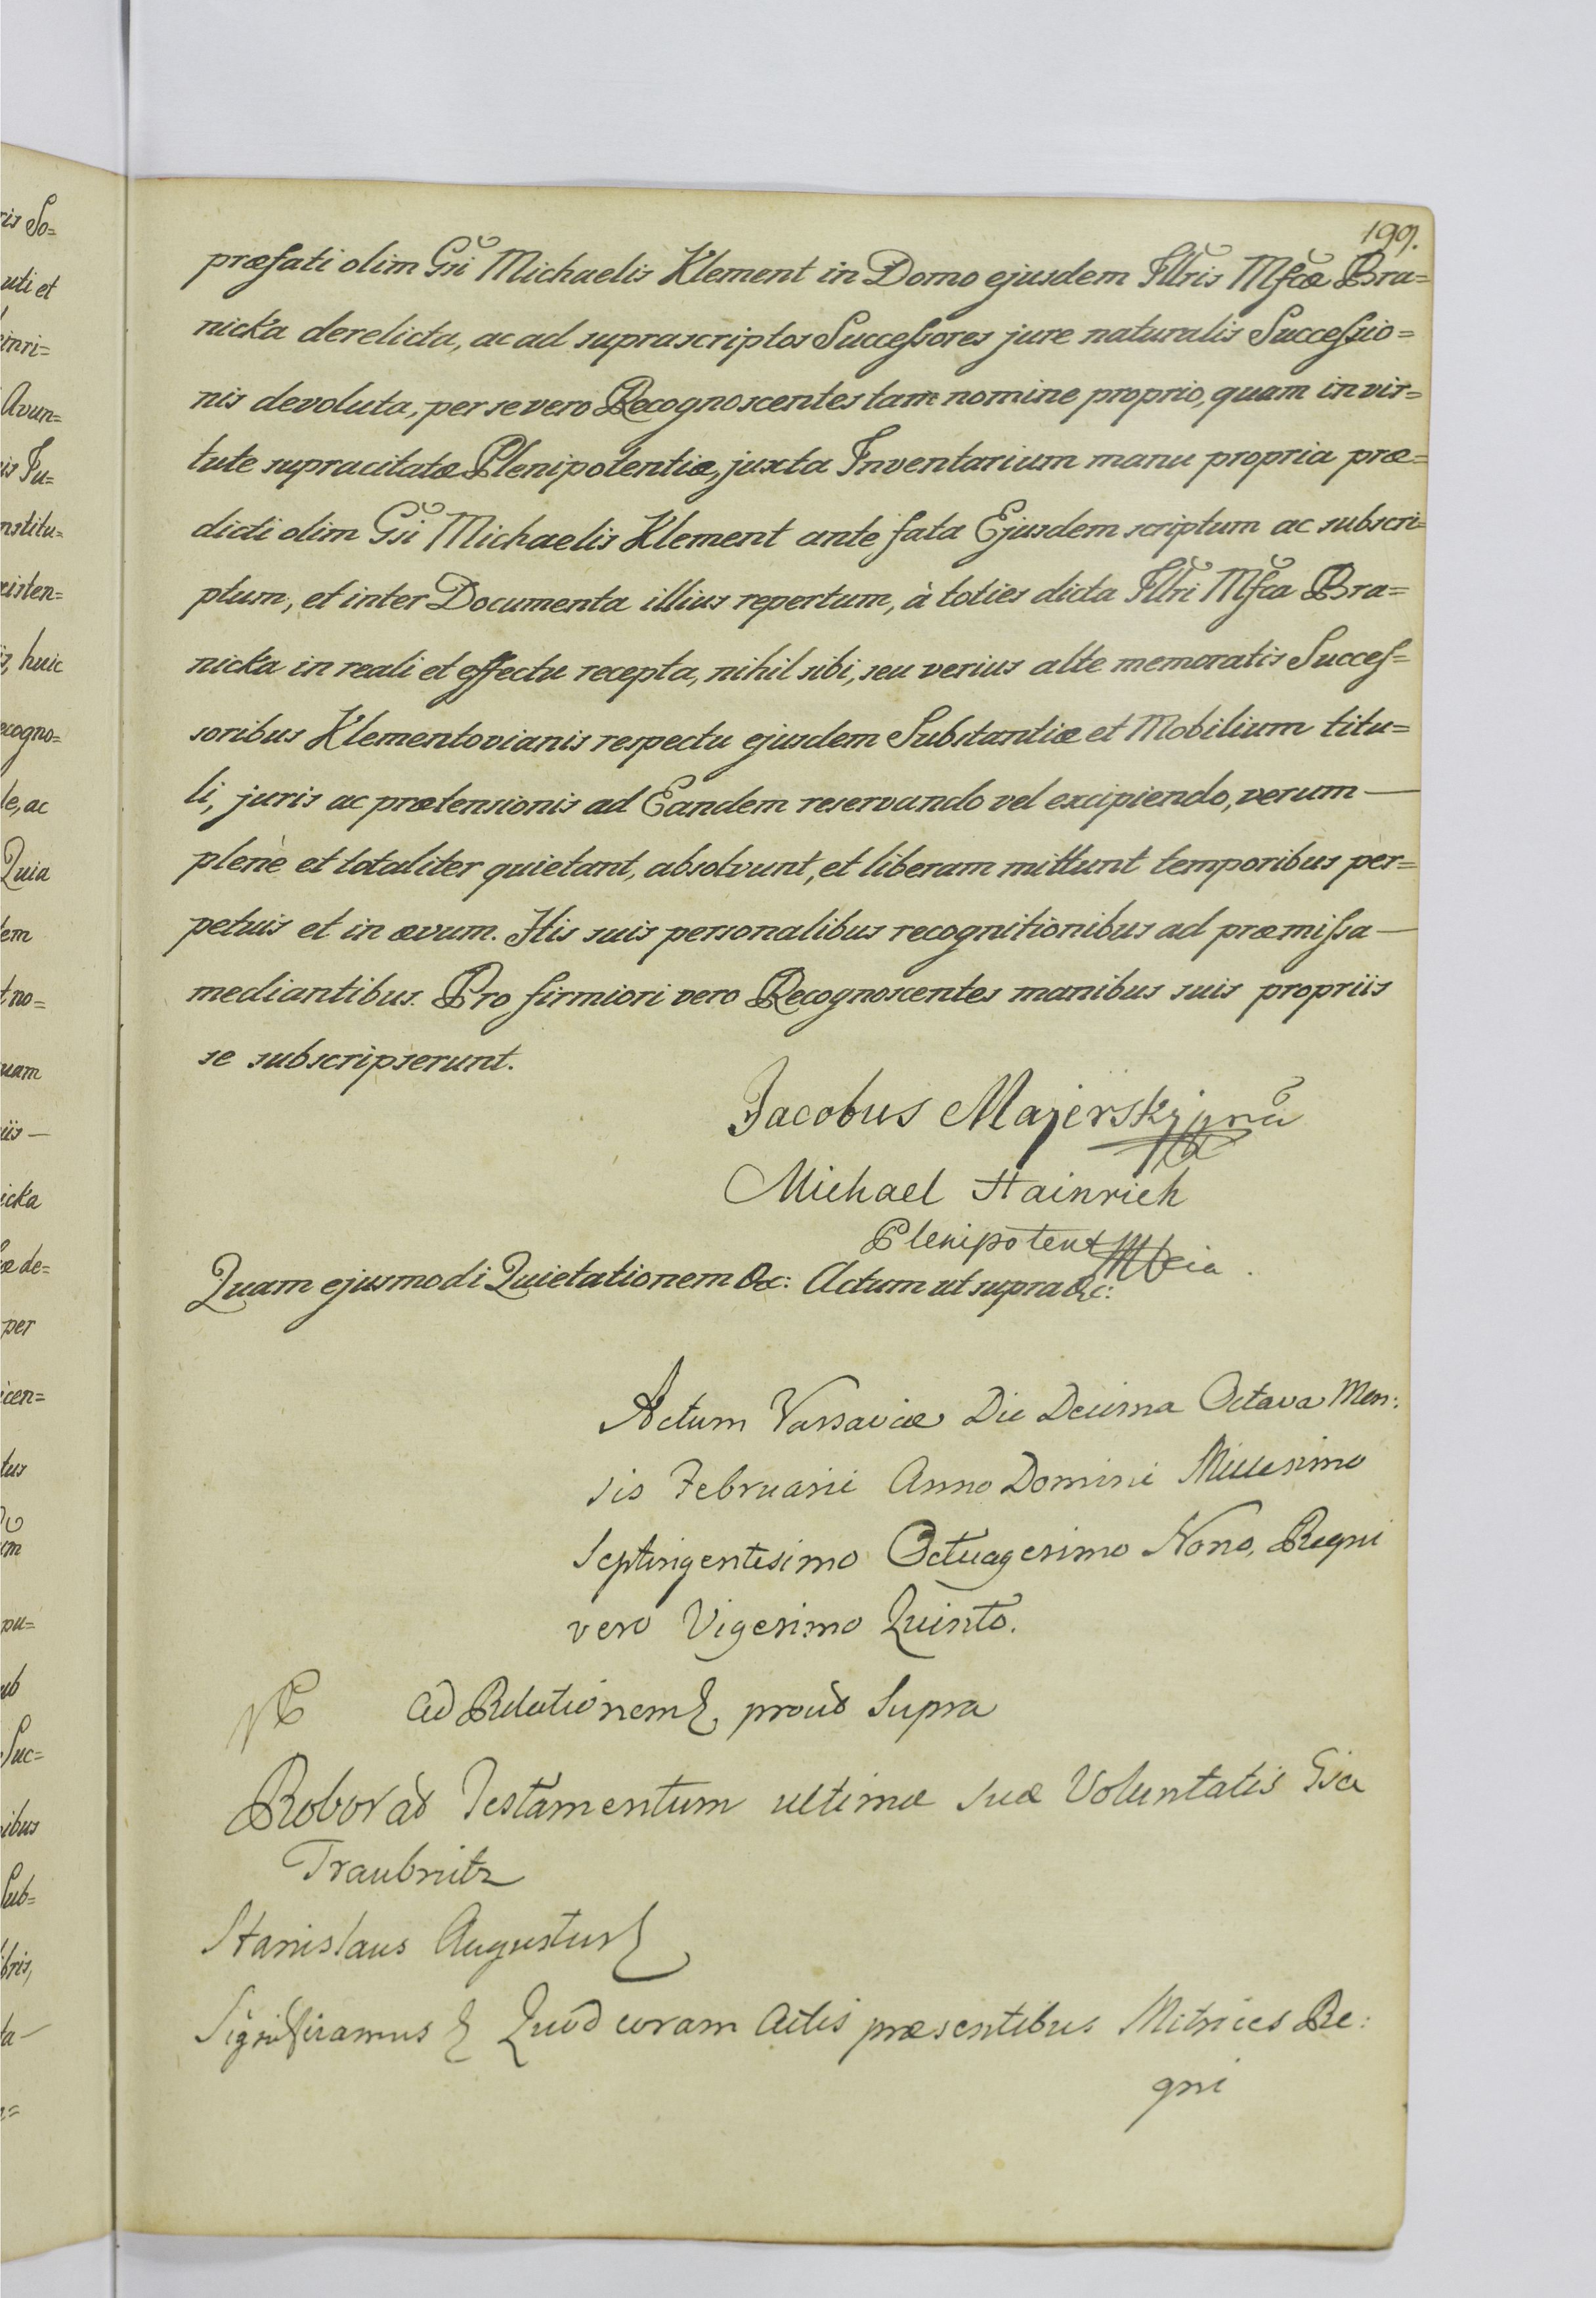 199.
præfati olim Gsi Michaelis Klement in Domo ejusdem Illris Mfcæ Bra=
nicka derelicta, ac ad suprascriptos Successores jure naturalis Successio=
nis devoluta, per se vero Recognoscentes tam nomine proprio, quam in vir=
tute supracitatæ Plenipotentiæ, juxta Inventarium manu propria præ=
dicti olim Gsi Michaelis Klement ante fata Ejusdem scriptum ac subscri=
ptum, et inter Documenta illius repertum, à toties dicta Illri Mfca Bra=
nicka in reali et effectu recepta, nihil sibi, seu verius alte memoratis Succes=
soribus Klementovianis respectu ejusdem Substantiæ et Mobilium titu=
li, juris ac prætensionis ad Eandem reservando vel excipiendo, verum —
plenè et totaliter quietant, absolvunt, et liberam mittunt temporibus per=
petuis et in ævum. His suis personalibus recognitionibus ad præmissa —
mediantibus. Pro firmiori vero Recognoscentes manibus suis propriis
se subscripserunt.
Jacobus Majerskj
Michael Hainrich
Plenipotent
Quam ejusmodi Quietationem &c: Actum ut supra &c:
Actum Varsaviæ Die Decima Octava Men:
sis Februarii Anno Domini Millesimo
Septingentesimo Octuagesimo Nono, Regni
vero Vigesimo Quinto.
Ad Relationem prout Supra
Roborat Testamentum ultimæ suæ Voluntatis Gsa
Traubnitz
Stanislaus Augustus
Significamus Quod coram Actis præsentibus Metrices Re:
gni